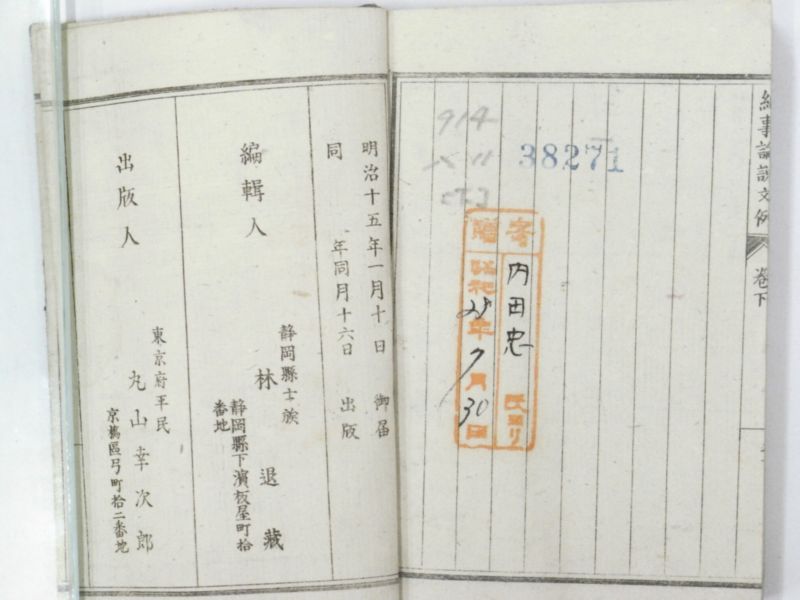 紀事論説文例
卷下
914
38271
寄贈
内田忠氏ヨリ
昭和25年9月30日
明治十五年一月十日 御届
同 年同月十六日 出版
編輯人
静岡縣士族
林 退藏
静岡縣下濱板屋町拾
番地
出版人
東京府平民
丸山幸次郎
京橋區弓町拾二番地